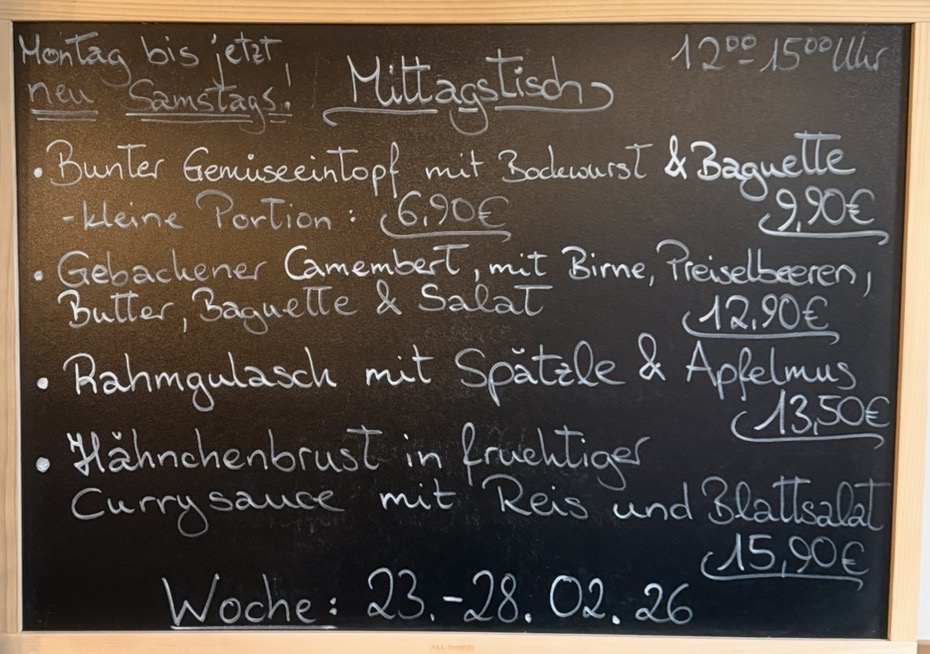 Montag bis jetzt
neu Samstags!
Mittagstisch
12⁰⁰-15⁰⁰ Uhr
• Bunter Gemüseeintopf mit Bockwurst & Baguette
- kleine Portion: 6,90€ 9,90€
• Gebackener Camembert, mit Birne, Preiselbeeren,
Butter, Baguette & Salat 12,90€
• Rahmgulasch mit Spätzle & Apfelmus
13,50€
• Hähnchenbrust in fruchtiger
Currysauce mit Reis und Blattsalat
15,90€
Woche: 23.-28.02.26